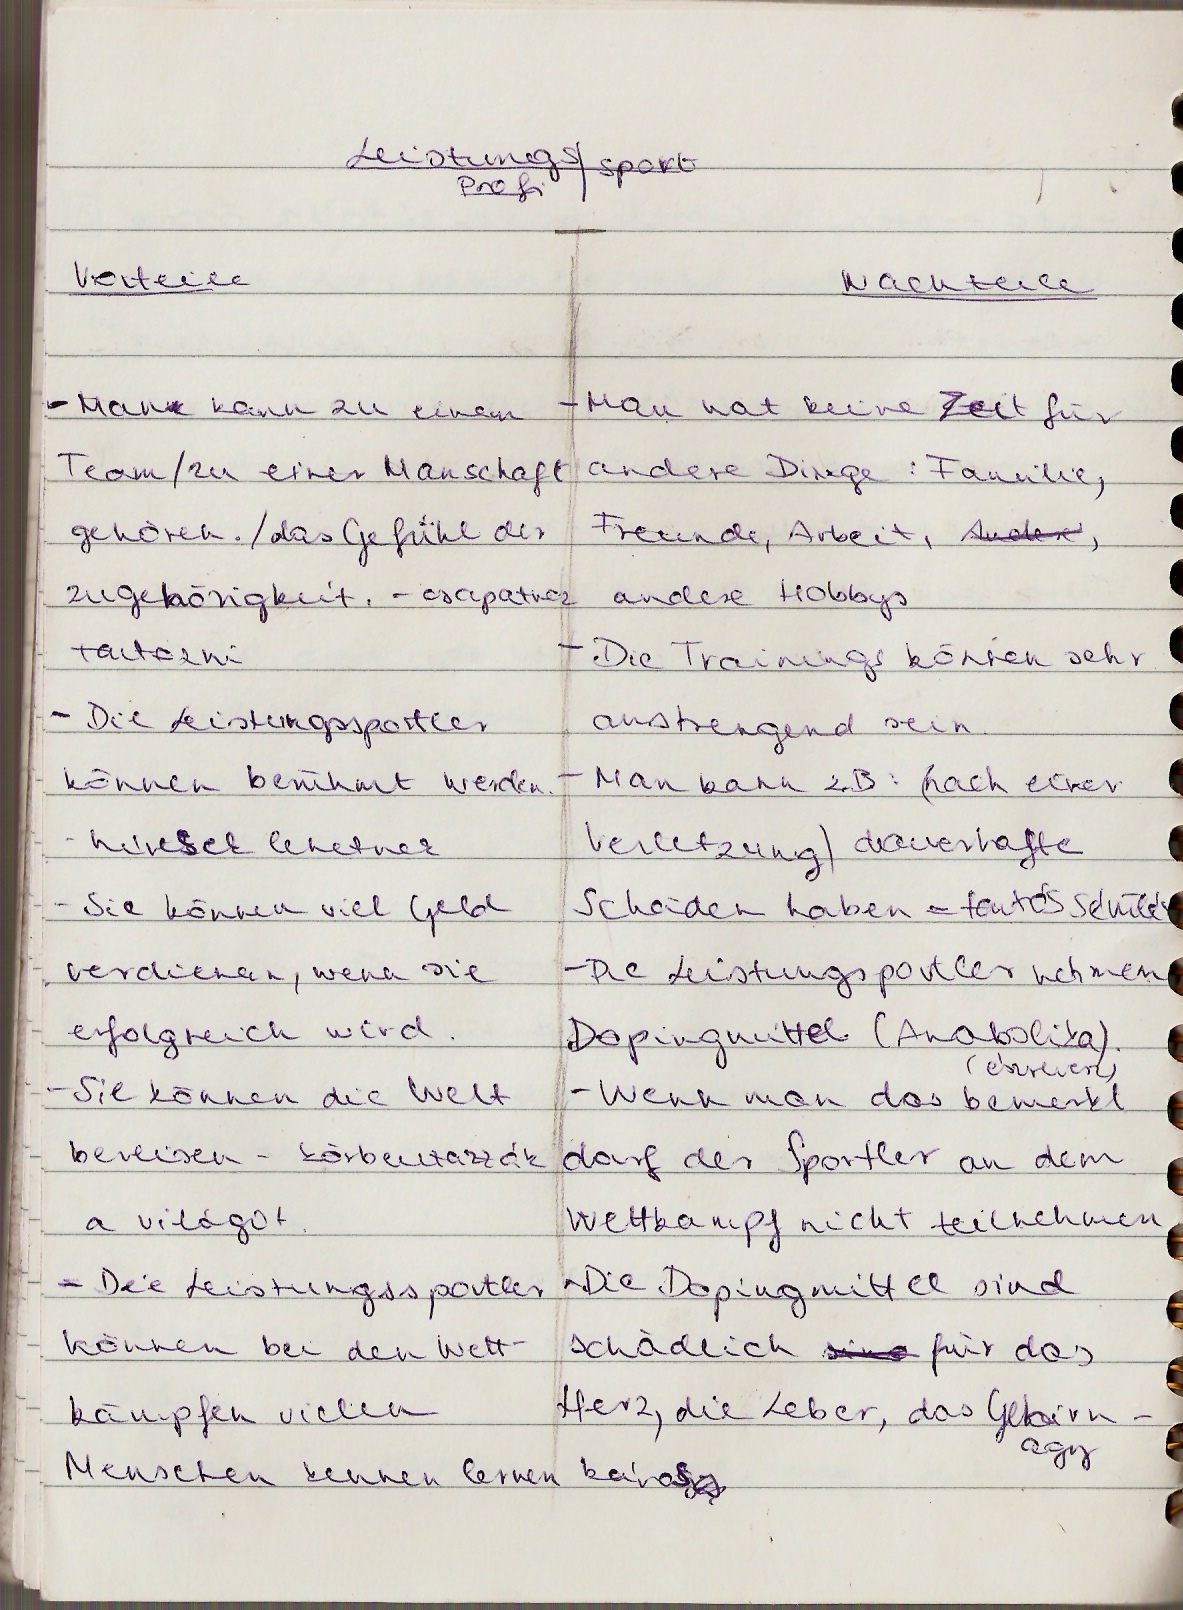 Leistungs/sport
Profi
Vorteile
- Man kann zu einem
Team/zu einer Manschaft
gehören./das Gefühl der
zugehörigkeit. - csapathoz
tartozni
- Die Leistungssportler
können berühmt werden.
- híresek lehetnek
- Sie können viel Geld
verdienen, wenn sie
erfolgreich wird.
- Sie können die Welt
bereisen - körbeutazzák
a világot.
- Die Leistungssportler
können bei den Wett-
kämpfen vielen
Menschen kennen lernen
Nachteile
- Man hat keine Zeit für
andere Dinge: Familie,
Freunde, Arbeit, Andere,
andere Hobbys
- Die Trainings können sehr
anstrengend sein.
- Man kann z.B: (nach einer
Verletzung) dauerhafte
Schäden haben =
- Die Leistungsportler nehmen
Dopingmittel (Anabolika).
(észreveszi)
- Wenn man das bemerkt
darf der Sportler an dem
Wettkampf nicht teilnehmen
- Die Dopingmittel sind
schädlich sind für das
Herz, die Leber, das Gehirn -
agy
káros